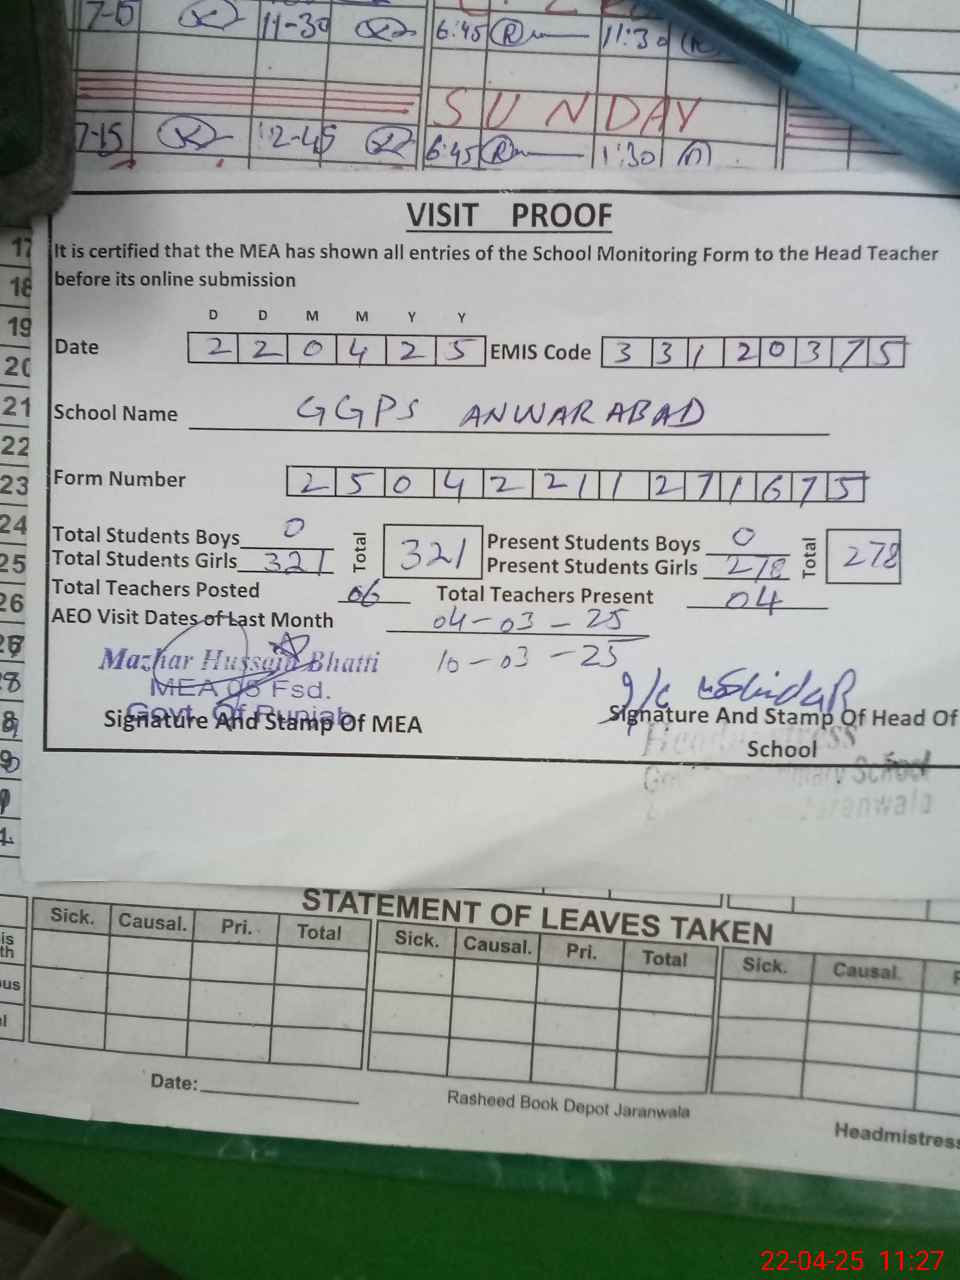 7-15 11-30 6:45 11:30
SUNDAY
7-15 12-45 6:45 1:30
VISIT PROOF
It is certified that the MEA has shown all entries of the School Monitoring Form to the Head Teacher
before its online submission
D D M M Y Y
Date 2 2 0 4 2 5 EMIS Code 3 3 1 2 0 3 7 5
School Name GGPS ANWAR ABAD
Form Number 2 5 0 4 2 2 1 1 2 7 1 6 7 5
Total Students Boys 0 Total 321 Present Students Boys 0 Total 278
Total Students Girls 321 Present Students Girls 278
Total Teachers Posted 06 Total Teachers Present 04
AEO Visit Dates of Last Month 04-03-25
10-03-25
Mazhar Hussain Bhatti
MEA 05 Fsd.
Govt. Of Punjab
Signature And Stamp Of MEA
Signature And Stamp Of Head Of
School
School
Jaranwala
17
18
19
20
21
22
23
24
25
26
STATEMENT OF LEAVES TAKEN
Sick. Causal. Pri. Total Sick. Causal. Pri. Total Sick. Causal.
Date:
Rasheed Book Depot Jaranwala
Headmistress
22-04-25 11:27